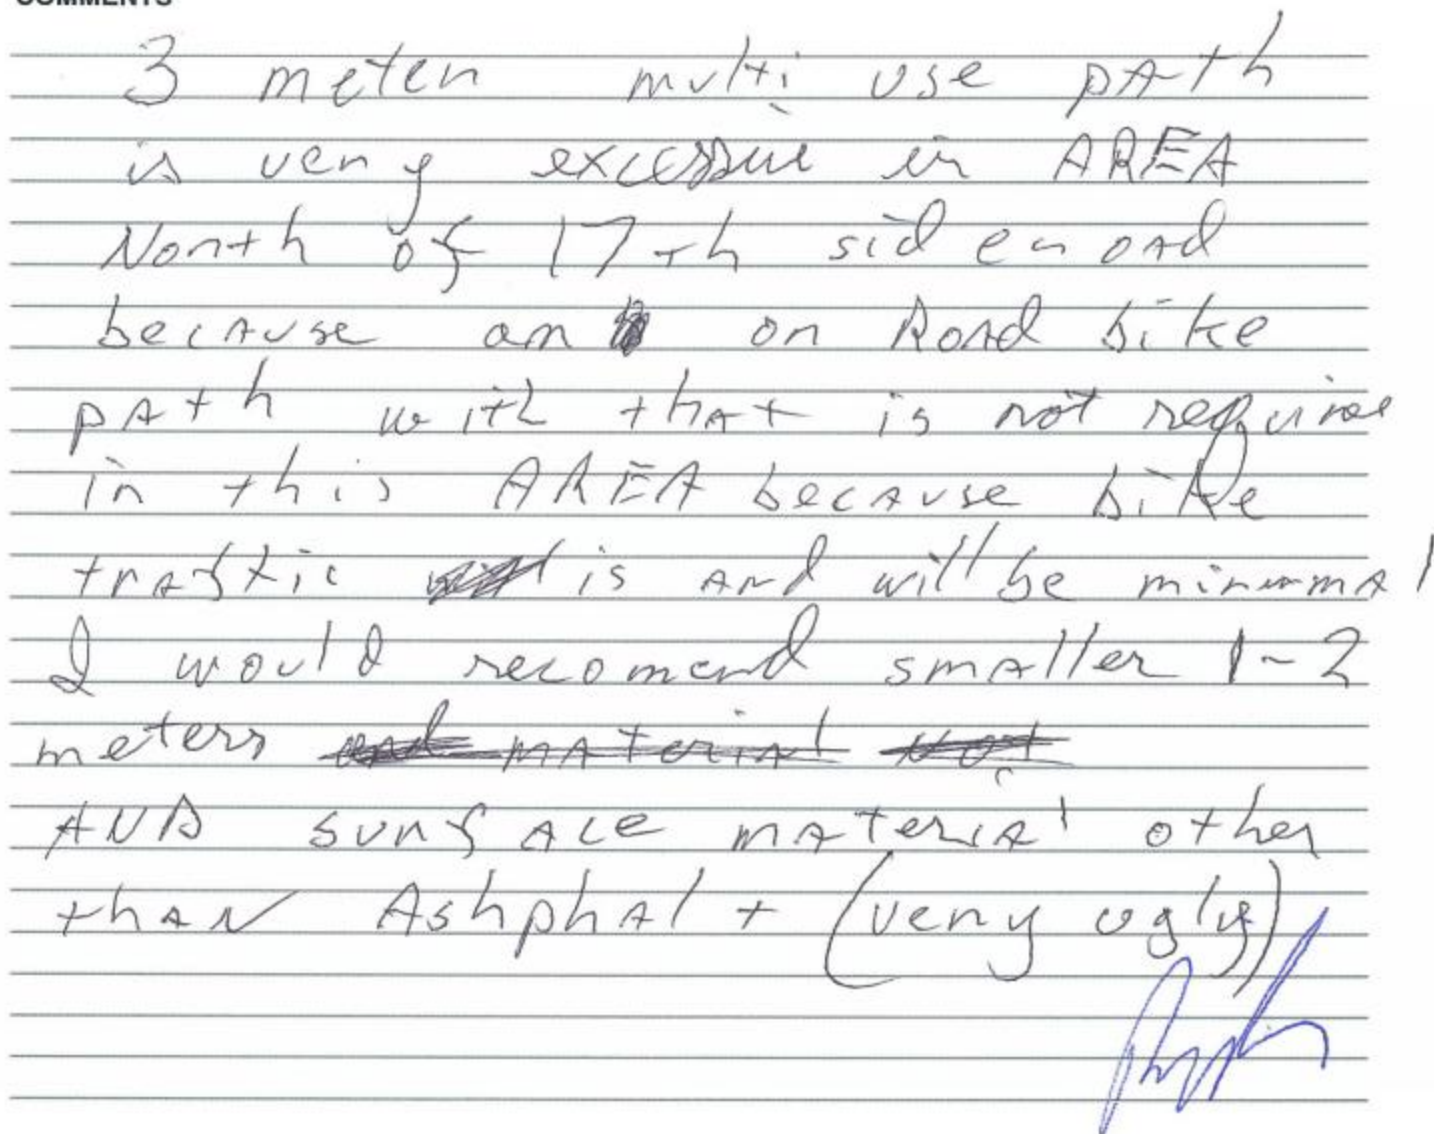 COMMENTS
3 meter multi use path
is very excessive in AREA
North of 17th sideroad
because an on Road bike
path with that is not require
in this AREA because bike
traffic is and will be minimal
I would recomend smaller 1-2
meters and material not
AND surface material other
than Ashphalt (very ugly)